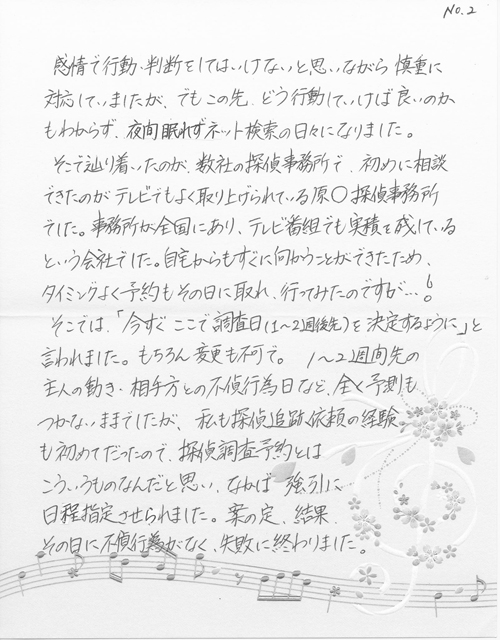 No.2
感情で行動・判断をしてはいけないと思いながら 慎重に
対応していましたが、でもこの先 どう行動していけば良いのか
もわからず、夜間眠れずネット検索の日々になりました。
そこで辿り着いたのが、数社の探偵事務所で、初めに相談
できたのがテレビでもよく取り上げられている原〇探偵事務所
でした。事務所が全国にあり、テレビ番組でも実積を残している
という会社でした。自宅からもすぐに向かうことができたため、
タイミングよく予約もその日に取れ、行ってみたのですが…!
そこでは、「今すぐここで調査日(1〜2週後先)を決定するように」と
言われました。もちろん変更も不可で。 1〜2週間先の
主人の動き・相手方との不倫行為日など、全く予測も
つかないままでしたが、私も探偵追跡依頼の経験
も初めてだったので、探偵調査予約とは
こういうものなんだと思い、なかば 強引に
日程指定させられました。案の定、結果、
その日に不倫行為がなく、失敗に終わりました。